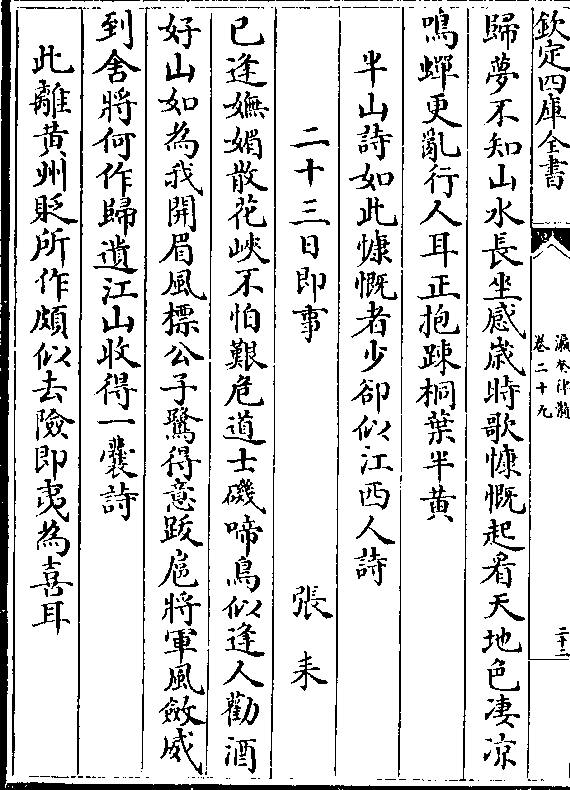 欽定四庫全書
瀛奎律髓
卷二十九
二十二
歸夢不知山水長坐感歲時歌慷慨起看天地色凄凉
鳴蟬更亂行人耳正抱踈桐葉半黄
半山詩如此慷慨者少卻似江西人詩
二十三日即事
張耒
已逢嫵媚散花峽不怕艱危道士磯啼鳥似逢人勸酒
好山如為我開眉風標公子鷺得意跋扈將軍風斂威
到舍將何作歸遺江山收得一囊詩
此離黄州貶所作頗似去險即夷為喜耳